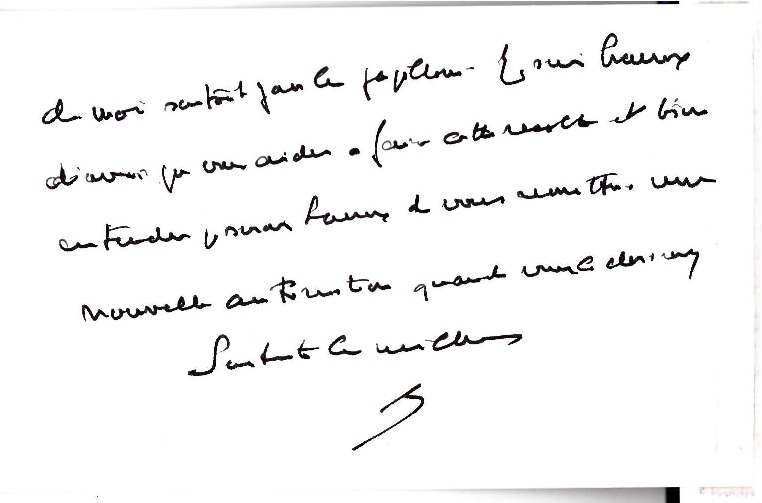 de moi surtout pour les papillons. Je suis heureux
d'avoir pu vous aider à faire cette récolte et bien
entendu je serai heureux de vous remettre une
nouvelle autorisation quand vous le désirerez